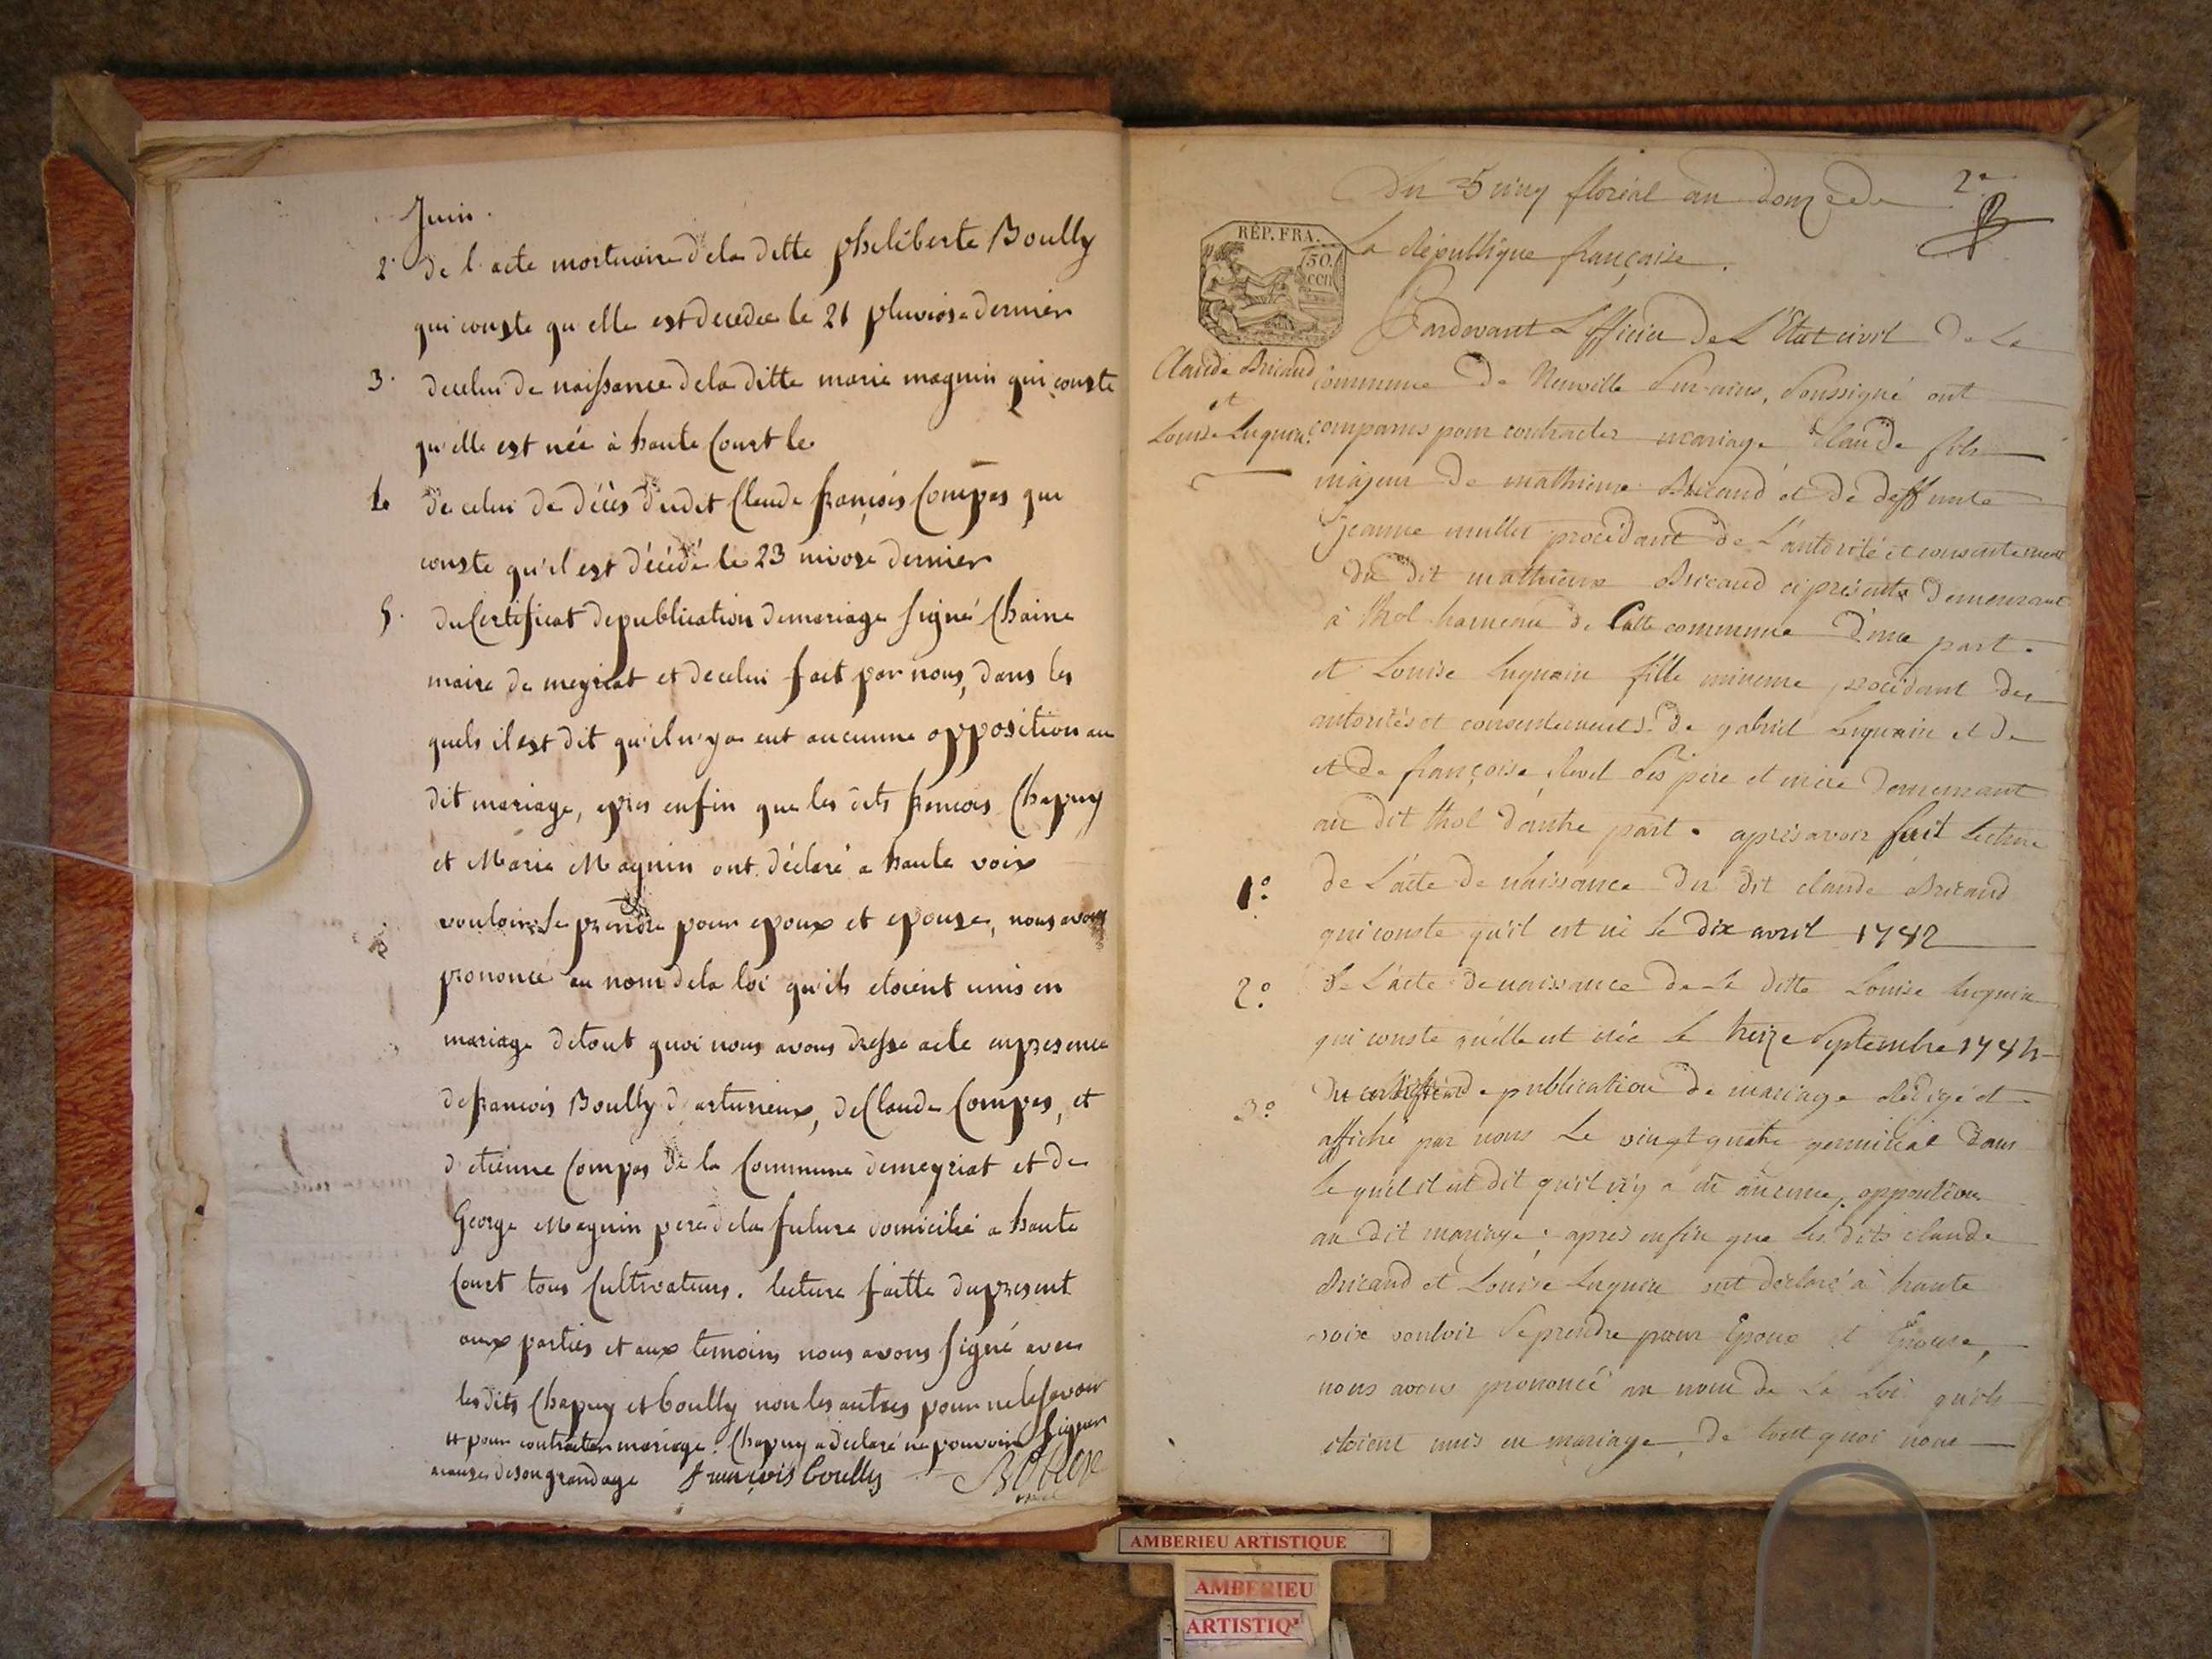 Juin.
2° de l'acte mortuaire dela ditte pheliberte Boully
qui conste qu'elle est decedee le 21 pluviose dernier
3° decelui de naissance dela ditte marie magnin qui conste
qu'elle est née à haute Court le
de celui de décès dudit Claude françois Compas qui
conste qu'il est décédé le 23 nivose dernier
5° du Certificat depublication demariage signé Chaine
maire de meyriat et decelui fait par nous, dans les
quels il est dit qu'il n'y a eut aucunne opposition au
dit mariage, apres enfin que les dits francois Chapuy
et Marie Magnin ont déclaré a haute voix
vouloir se prendre pour epoux et epouse, nous avons
prononcé au nom dela loi qu'ils etoient unis en
mariage detout quoi nous avons dressé acte enpresence
de francois Boully d'arturieux, de Claude Compas, et
d'etienne Compas de la Commune demeyriat et de
George Magnin pere dela future domicilié a haute
Court tous Cultivateurs. lecture faitte dupresent
aux parties et aux temoins nous avons signé avec
les dits Chapuy et boully non les autres pour ne le savoir
pour contracter mariage. Chapuy a declaré ne pouvoir signer
acause deson grand age françois boully
Du 5 cinq floréal an douze de 2e
La République française.
RÉP. FRA.
50.
CEN
Pardevant L'officier De L'Etat civil De La
Claude Bricand
et
Louise Luguin.
commune De Neuville Sur-ains, Soussigné ont
comparus pour contracter mariage Claude fils
majeur De mathieu Bricand et De deffunte
Jeanne mullet procédant De L'autorité et consentement
du dit mathieu Bricand ci présent Demeurant
à thol hameau de Cette commune D'une part.
et Louise Luguin fille mineure procédant des
autorités et consentements De gabriel Luguin et De
et De françoise Revel Ses père et mère Demeurant
au Dit thol D'autre part. après avoir fait Lecture
1° De L'acte De naissance Du Dit claude Bricand
qui conste qu'il est né le dix avril 1782
2° De L'acte De naissance De La Ditte Louise Luguin
qui conste qu'elle est née le treize Septembre 1784
3° Du certificat De publication De mariage Rédigé et
affiché par nous Le vingt quatre germinal Dans
Le quel il est dit qu'il n'y a eu aucune opposition
au Dit mariage; après enfin que les dits claude
Bricand et Louise Luguin ont déclaré à haute
voix vouloir Se prendre pour Epoux et Epouse,
nous avons prononcé au nom De La Loi qu'ils
étoient unis en mariage De tout quoi nous
AMBERIEU ARTISTIQUE
AMBERIEU
ARTISTIQ